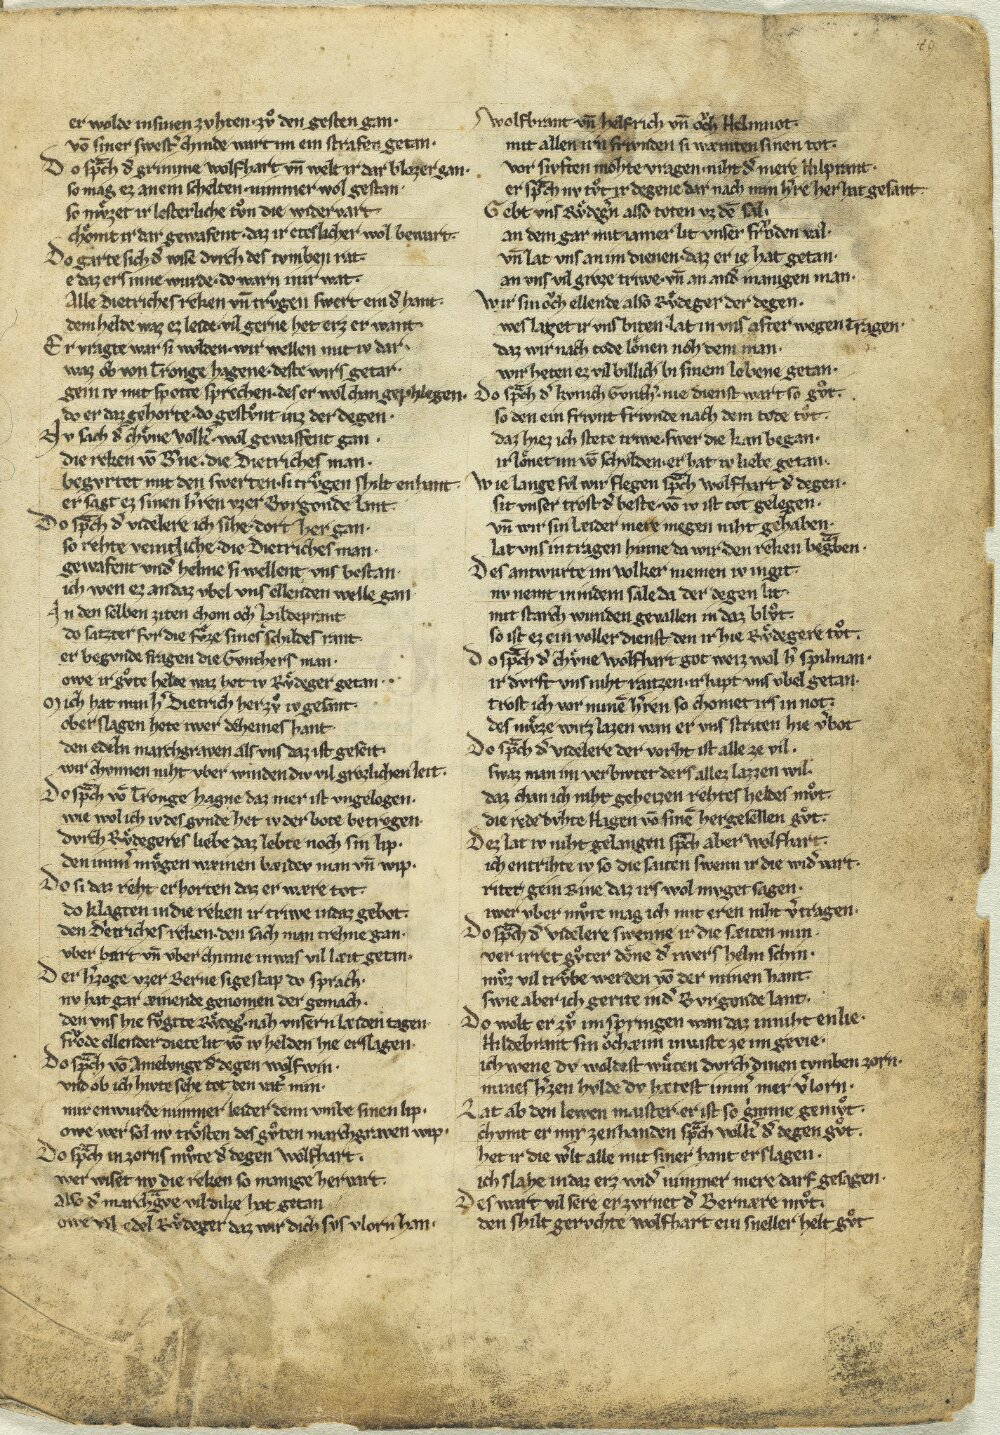 19
er wolde in sinen zvhten · zvͦ den gesten gan ·
vō siner swest͛ chinde wart im ein strafen getan ·
Do sp͛ch d͛ grimme wolfhart vn̄ welt ir dar blozer gan ·
so mag ez an em schelten · nimmer wol gestan ·
so mvͤzet ir lesterliche tvͦn die widervart
chomt ir dar gewafent · daz ir eteslicher wol bewart ·
Do garte sich d͛ wise dvrch des tvmben rat ·
e daz ers inne wurde · do warn in ir wat ·
Alle dietriches reken vn̄ trvͦgen swert en d͛ hant ·
dem helde waz ez leide · vil gerne het erz er want ·
Er vragte war si wolden · wir wellen mit iv dar ·
waz ob von Tronge hagene · deste wirs getar ·
gein iv mit spotte sprechen · des er wol chan gephlegen ·
do er daz gehorte · do gestvͦnt inz der degen ·
Nv sach d͛ chvͤne volk͛ · wol gewaffent gan ·
die reken vō B͛ne · die Dietriches man ·
begvrtet mit den swerten · si trvͦgen shilt enhant
er sagt ez sinen h͛ren vzer Bvrgonde lant ·
Do sp͛ch d͛ videlere ich sihe · dort her gan ·
so rehte veintliche · die Dietriches man ·
gewafent vnd͛ helme si wellent vns bestan ·
ich wen ez an daz vbel vns ellenden welle gan
In den selben ziten chom och hildeprant
do satzter for die fvͤze sines schildes rant ·
er begvnde fragen die Gvnthers man ·
owe ir gvͦte helde waz het iv Rvͤdeger getan ·
Mich hat min h͛ Dietrich her zvͦ iv gesant ·
ob erslagen hete iwer deheines hant
den edeln marchgraven als vns daz ist geseit ·
wir chvnnen niht vber winden div vil grozlichen leit ·
Do sp͛ch vō Tronge hagne daz mer ist vngelogen ·
wie wol ich iv des gvnde het iv der bote betrogen
dvrch Rvͤdegeres liebe daz lebte noch sin lip ·
den imm͛ mvͤgen wæinen bæidev man vn̄ wip ·
Do si daz reht erhorten daz er wære tot ·
do klagten in die reken ir triwe in daz gebot ·
den Dietriches reken · den sach man trehne gan ·
vber bart vn̄ vber chinne in was vil læit getan ·
Der h͛zoge vzer Berne sigestap do sprach ·
nv hat gar æinende genomen der gemach ·
den vns hie fvͤgtte Rvͤdeg͛ · nah vnsern læiden tagen
frvͦde ellender diete lit vō iv helden hie erslagen ·
Do sp͛ch vō Amelvnge d͛ degen wolfwin ·
vnd ob ich hivte sehe tot den vat͛ min ·
mir enwurde nimmer leider denn vmbe sinen lip ·
owe wer sol nv trosten des gvͦten marchgraven wip ·
Do sp͛ch in zorns mvͦte d͛ degen wolfhart ·
wer wiset nv die reken so manige hervart ·
also d͛ marchg͛ve vil dike hat getan
owe vil edel Rvͤdeger daz wir dich svs vlorn han ·
Wolfbrant vn̄ helfrich vn̄ och Helmnot ·
mit allen irn frivnden si wæinten sinen tot ·
vor sivften mohte vragen · niht d͛ mere hilprant ·
er sp͛ch nv tvͦt ir degene dar nach min h͛re her hat gesant ·
Gebt vns Rvͤdeg͛n also toten vz dē sal ·
an dem gar mit iamer lit vnser frvͦden val ·
vn̄ lat vns an im dienen · daz er ie hat getan ·
an vns vil groze triwe · vn̄ an and͛ manigen man ·
Wir sin och ellende also Rvͤdeger der degen ·
wes lazet ir vns biten · lat in vns after wegen tragen ·
daz wir nach tode lonen noh dem man ·
wir heten ez vil billich bi sinem lebene getan ·
Do sp͛ch d͛ kvnich Gvnth͛ · nie dienst wart so gvͦt ·
so den ein frivnt frivnde nach dem tode tvͦt ·
daz hiez ich stete triwe · swer die kan began ·
ir lonet im vō schvlden · er hat iv liebe getan ·
Wie lange svl wir flegen sp͛ch wolfhart d͛ degen ·
sit vnser trost d͛ beste · vō iv ist tot gelegen ·
vn̄ wir sin leider mere megen niht gehaben ·
lat vns in tragen hinne da wir den reken beg͛ben ·
Des antwurte im volker niemen iv in git ·
nv nemt in in dem sale da der degen lit ·
mit starch wunden gevallen in daz blvͦt ·
so ist ez ein voller dienst den ir hie Rvͤdegere tvͦt ·
Do sp͛ch d͛ chvͤne wolfhart got weiz wol h͛ spilman ·
ir dvrft vns niht raitzen · ir hapt vns vbel getan ·
trost ich vor minē h͛ren so chomet irs in not ·
des mvͤze wirz lazen wan er vns striten hie v͛bot
Do sp͛ch d͛ videlere der vorht ist alle ze vil ·
swaz man im verbivtet ders allez lazzen wil ·
daz chan ich niht geheizen rehtes heldes mvͦt ·
die rede dvhte Hagen vō sinē hergesellen gvͦt ·
Dez lat iv niht gelangen sp͛ch aber wolfhart ·
ich entrihte iv so die saiten swenn ir die wid͛vart ·
ritet gein Rine daz irs wol mvget sagen ·
iwer vber mvͦte mag ich mit eren niht v͛tragen ·
Do sp͛ch d͛ videlere swenne ir die sæiten min ·
ver irret gvͦter done d͛ iwers helm schin ·
mvͦz vil trvͤbe werden vō der minen hant ·
swie aber ich gerite in d͛ Bvrgonde lant ·
Do wolt er zvͦ im springen wan daz in niht en lie ·
Hildebrant sin ohæim in vaste ze im gevie ·
ich wene dv woldest wvͤten dvrch dinen tvmben zorn ·
mines h͛zen hvlde dv hætest imm͛ mer v͛lorn ·
Lat ab den lewen maister er ist so g͛mme gemvͦt ·
chvmt er mir zen handen sp͛ch volk͛ d͛ degen gvͦt ·
het ir die w͛lt alle mit siner hant erslagen ·
ich slahe in daz erz wid͛ nimmer mere darf gesagen ·
Des wart vil sere erzvrnet d͛ Bernære mvͦt ·
den shilt gervchte wolfhart ein sneller helt gvͦt